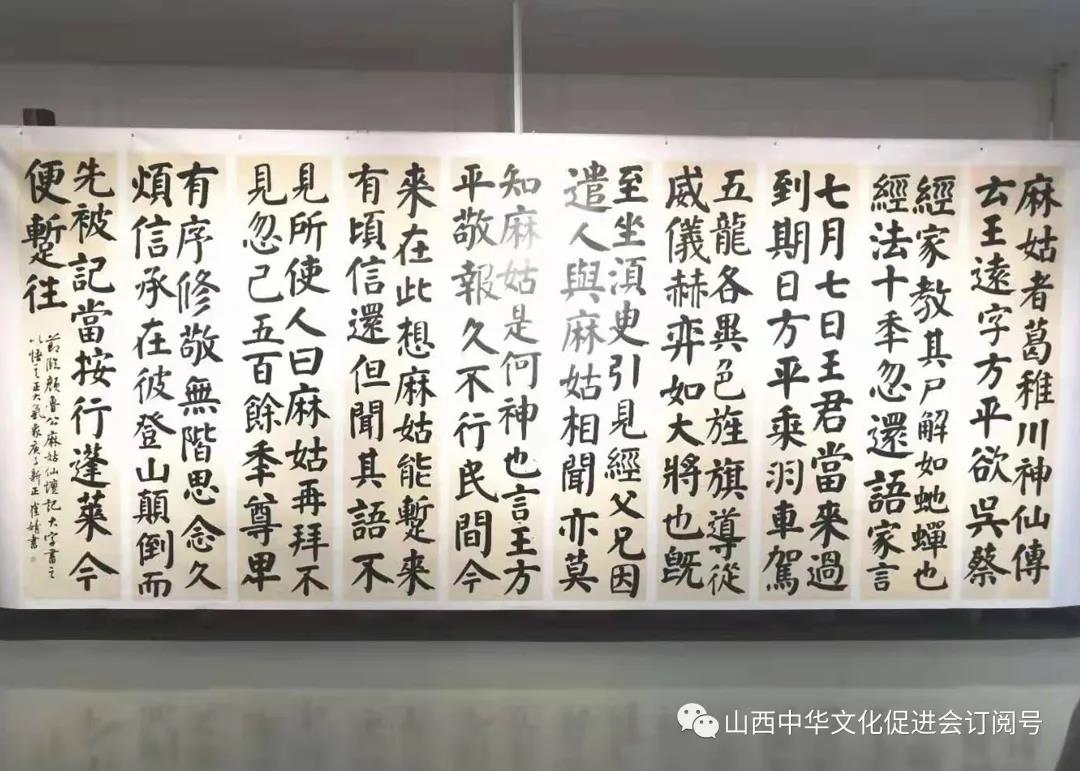 麻姑者葛稚川神仙傳
云王遠字方平欲吳蔡
經家教其尸解如虵蟬也
經法十季忽還語家言
七月七日王君當來過
到期日方平乘羽車駕
五龍各異色旌旗導從
威儀赫弈如大將也既
至坐湏臾引見經父兄因
遣人與麻姑相聞亦莫
知麻姑是何神也言王方
平敬報久不行民間今
来在此想麻姑能蹔来
有頃信還但聞其語不
見所使人曰麻姑再拜不
見忽已五百餘秊尊卑
有序修敬無階思念久
煩信承在彼登山顛倒而
先被記當按行蓬萊今
便蹔往
節臨顏魯公麻姑仙壇記大字書之
以悟之正大氣象庚子新正崔靖書
山西中华文化促进会订阅号